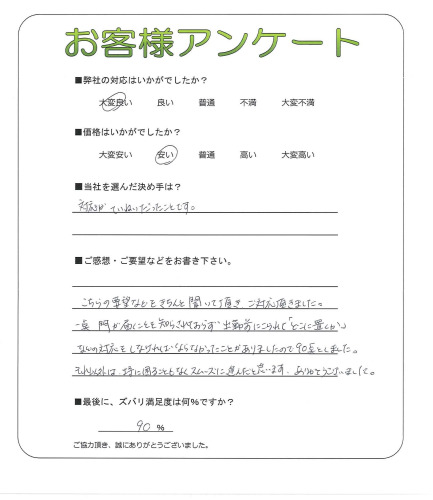 お客様アンケート
■弊社の対応はいかがでしたか？
大変良い 良い 普通 不満 大変不満
■価格はいかがでしたか？
大変安い 安い 普通 高い 大変高い
■当社を選んだ決め手は？
対応が ていねいだったことです。
■ご感想・ご要望などをお書き下さい。
こちらの要望などをきちんと聞いて頂き ご対応頂きました。
一点 門が届くことを知らされておらず 出勤前にこられて「どこに置くか」
などの対応をしなければならなかったことがありましたので90点としました。
それ以外は、特に困ることもなくスムーズに進んだと思います。ありがとうございました。
■最後に、ズバリ満足度は何%ですか？
90 %
ご協力頂き、誠にありがとうございました。